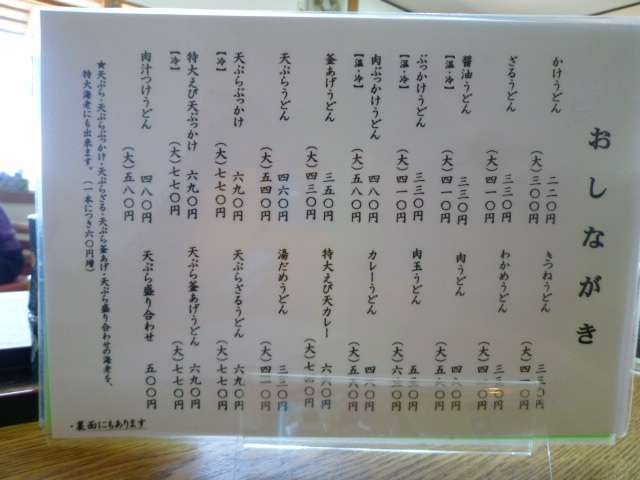 おしながき
かけうどん 二二〇円
(大)三〇〇円
ざるうどん 三三〇円
(大)四一〇円
醤油うどん
【温・冷】 三三〇円
(大)四一〇円
ぶっかけうどん
【温・冷】 三三〇円
(大)四一〇円
肉ぶっかけうどん
【温・冷】 四八〇円
(大)五八〇円
釜あげうどん 三五〇円
(大)四三〇円
天ぷらうどん 四六〇円
(大)五四〇円
天ぷらぶっかけ
【冷】 六九〇円
(大)七七〇円
特大えび天ぶっかけ
【冷】 六九〇円
(大)七七〇円
肉汁つけうどん 四八〇円
(大)五八〇円
きつねうどん 三三〇円
(大)四一〇円
わかめうどん
(大)四
肉うどん 四八〇円
(大)五六〇円
肉玉うどん 五三〇円
(大)六三〇円
カレーうどん 四八〇円
(大)五六〇円
特大えび天カレー 六六〇円
(大)七四〇円
湯だめうどん 三三〇円
(大)四一〇円
天ぷらざるうどん 六九〇円
(大)七七〇円
天ぷら釜あげうどん 六九〇円
(大)七七〇円
天ぷら盛り合わせ 五〇〇円
★天ぷら・天ぷらぶっかけ・天ぷらざる・天ぷら釜あげ・天ぷら盛り合わせの海老を、
特大海老にも出来ます。(一本につき六〇円増)
・裏面にもあります